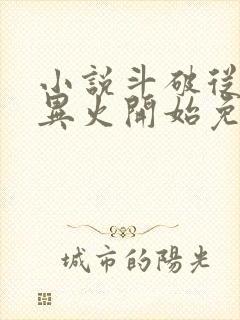 小說斗破從
異火開始免
城市的陽光